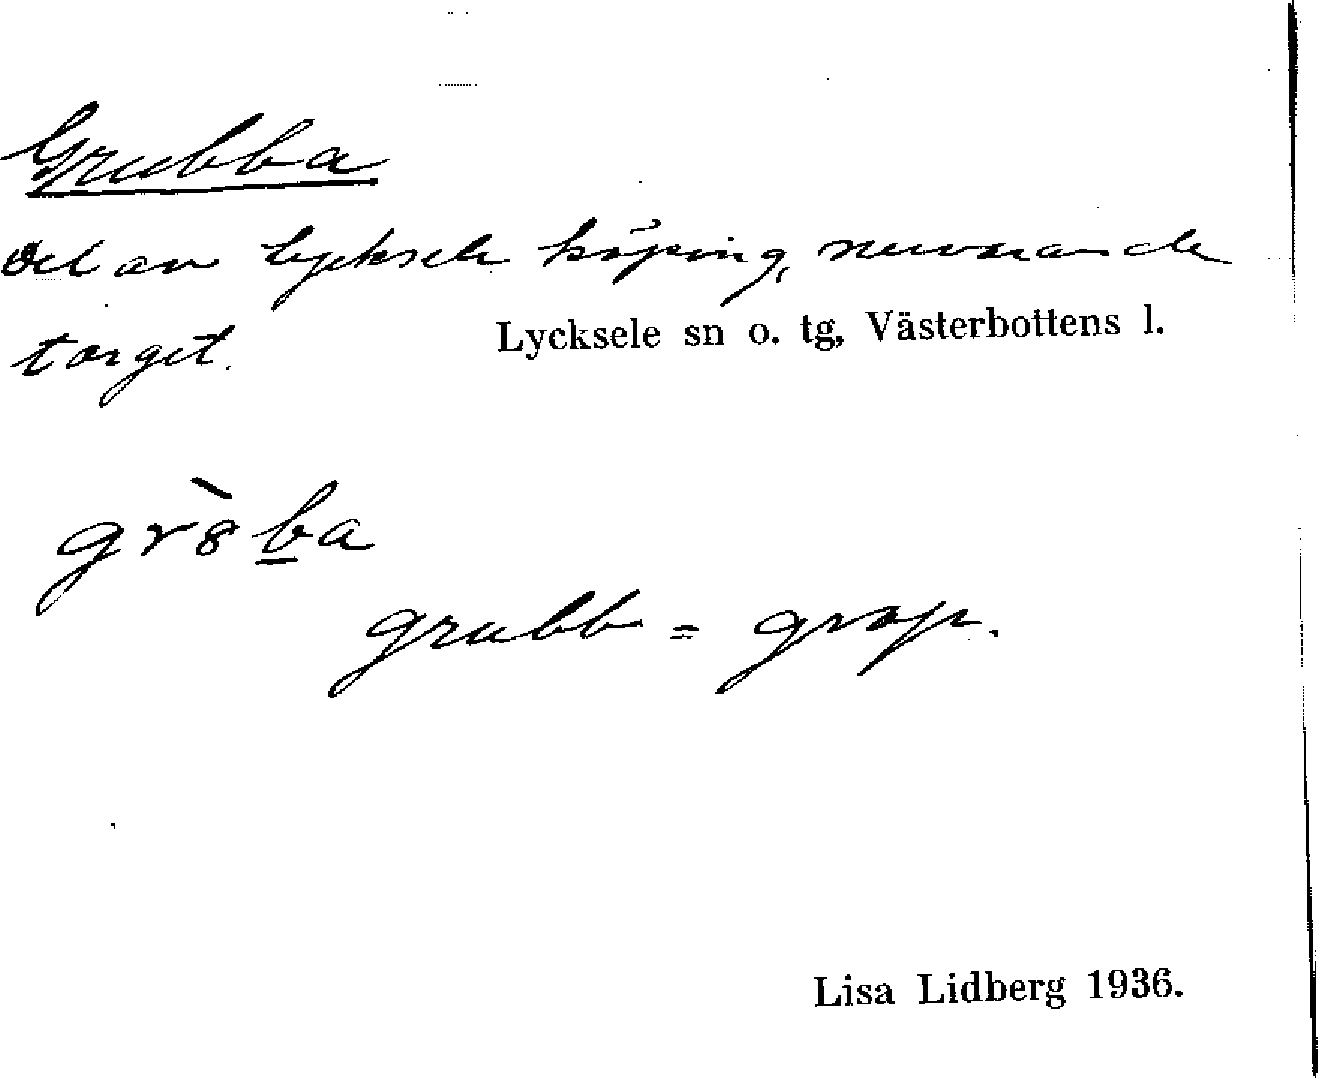 Grubba
Del av Lycksele köping, nuvarande
torget.
Lycksele sn o. tg, Västerbottens l.
gr8̀b̲a
grubb = grop.
Lisa Lidberg 1936.